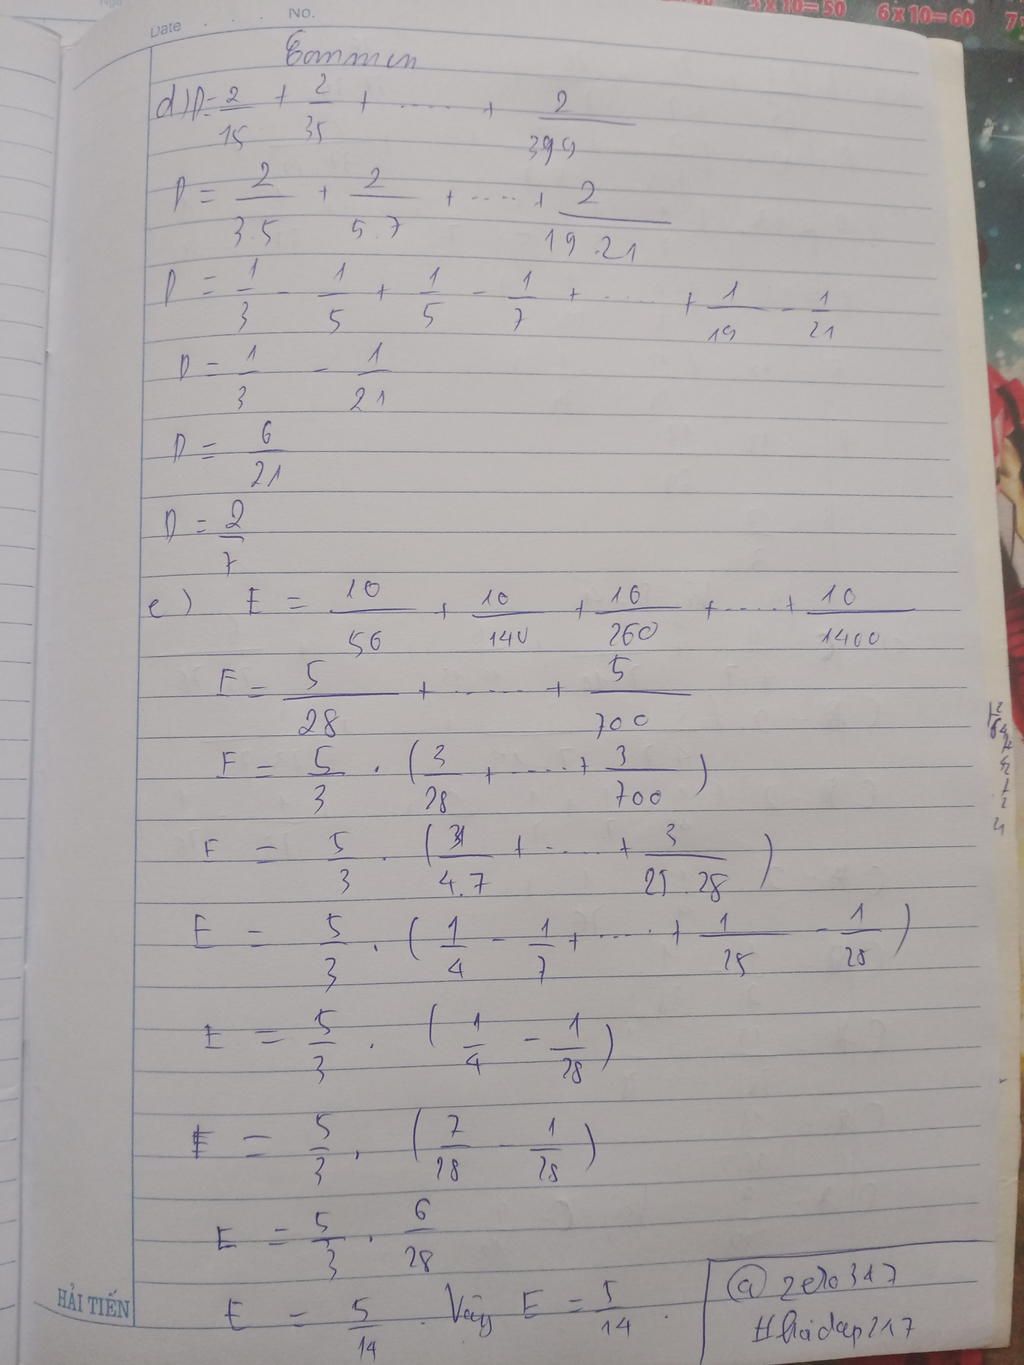 5x10=50 6x10=60
Date No.
d) D = 2/15 + 2/35 + ..... + 2/399
D = 2/3.5 + 2/5.7 + ..... + 2/19.21
D = 1/3 - 1/5 + 1/5 - 1/7 + ..... + 1/19 - 1/21
D = 1/3 - 1/21
D = 6/21
D = 2/7
e) E = 10/56 + 10/140 + 10/260 + ..... + 10/1400
E = 5/28 + ..... + 5/700
E = 5/3 . (3/28 + ..... + 3/700)
E = 5/3 . (3/4.7 + ..... + 3/25.28)
E = 5/3 . (1/4 - 1/7 + ..... + 1/25 - 1/28)
E = 5/3 . (1/4 - 1/28)
E = 5/3 . (7/28 - 1/28)
E = 5/3 . 6/28
E = 5/14 . Vậy E = 5/14 .
HẢI TIẾN
@zero317
#hoidap217